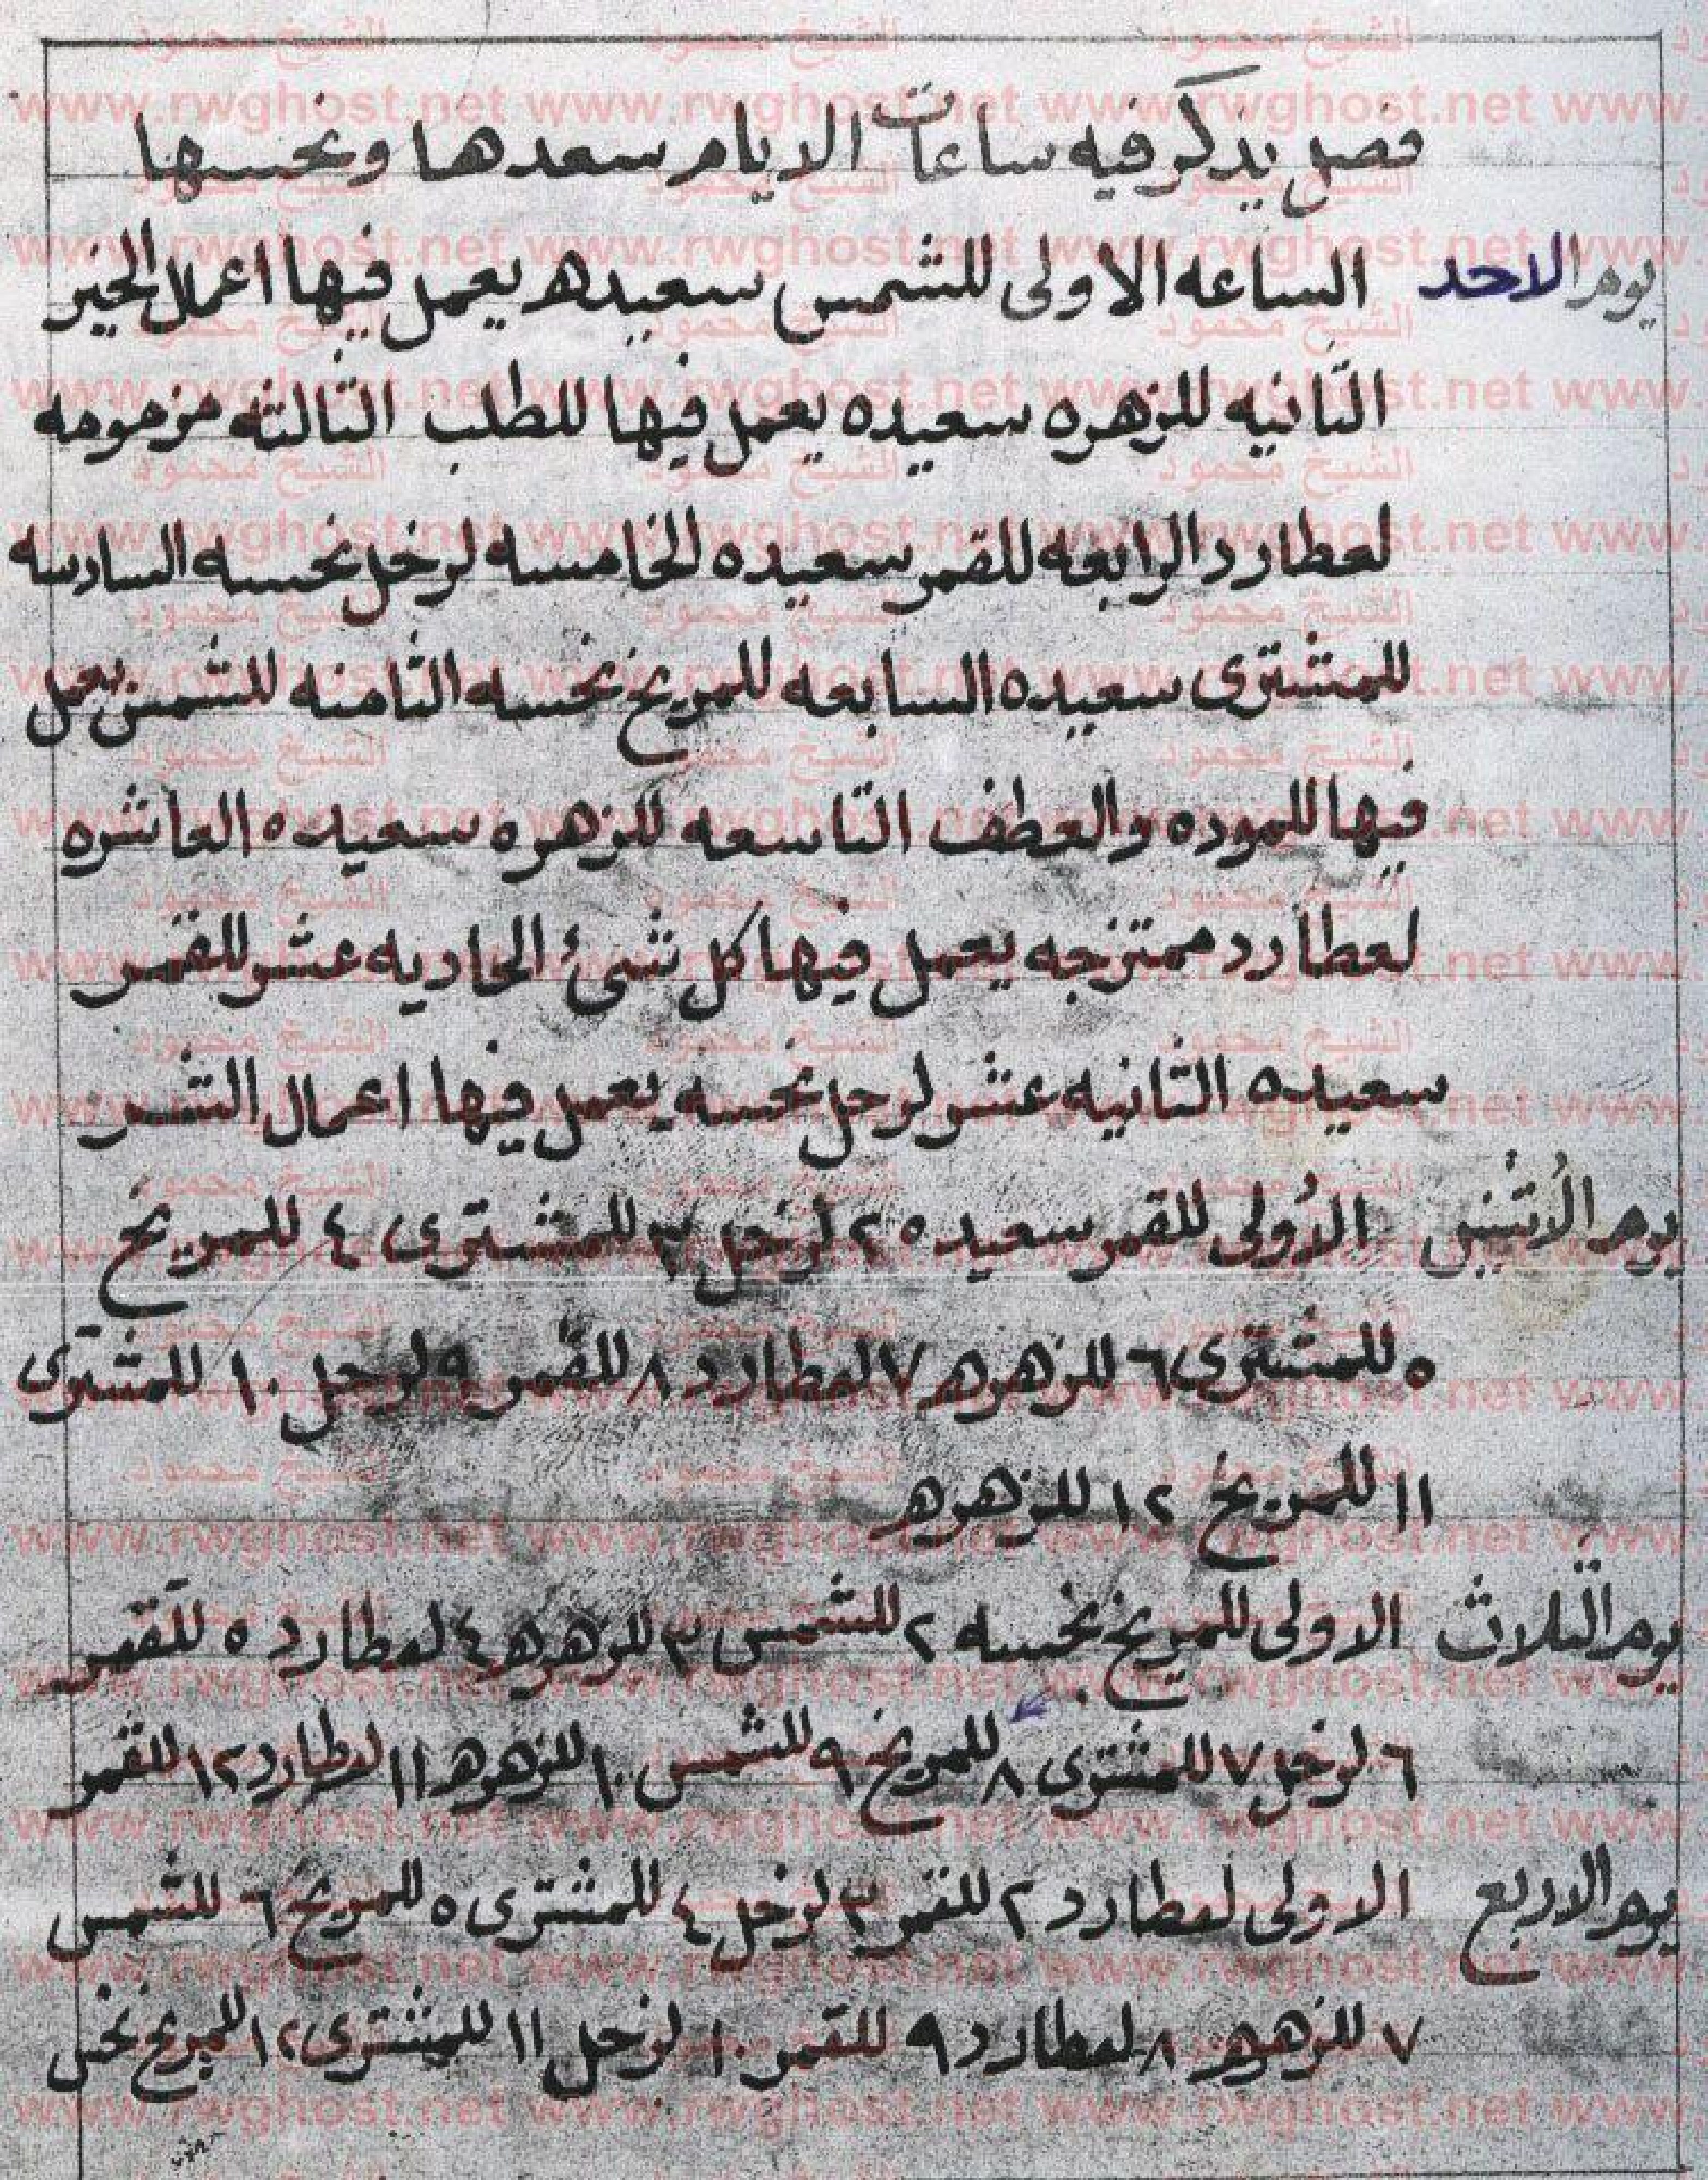 فصل يذكر فيه ساعات الايام سعدها ونحسها
يوم الاحد الساعه الاولى للشمس سعيده يعمل فيها اعمال الخير
الثانيه للزهره سعيده يعمل فيها للطلب الثالثه مزمومه
لعطارد الرابعه للقمر سعيده الخامسه لزحل نحسه السادسه
للمشترى سعيده السابعه للمريخ نحسه الثامنه للشمس يعمل
فيها للموده والعطف التاسعه للزهره سعيده العاشره
لعطارد ممتزجه يعمل فيها كل شئ الحاديه عشر للقمر
سعيده الثانيه عشر لزحل نحسه يعمل فيها اعمال الشر
يوم الأثنين الأولى للقمر سعيده ٢ لزحل ٣ للمشترى ٤ للمريخ
٥ للمشترى ٦ للزهره ٧ لعطارد ٨ للقمر ٩ لزحل ١٠ للمشترى
١١ للمريخ ١٢ للزهره
يوم الثلاث الاولى للمريخ نحسه ٢ للشمس ٣ للزهره ٤ لعطارد ٥ للقمر
٦ لزحل ٧ للمشترى ٨ للمريخ ٩ للشمس ١٠ للزهره ١١ لعطارد ١٢ للقمر
يوم الاربع الاولى لعطارد ٢ للقمر ٣ لزحل ٤ للمشترى ٥ للمريخ ٦ للشمس
٧ للزهره ٨ لعطارد ٩ للقمر ١٠ لزحل ١١ للمشترى ١٢ للمريخ نحس
الشيخ محمود
www.rwghost.net